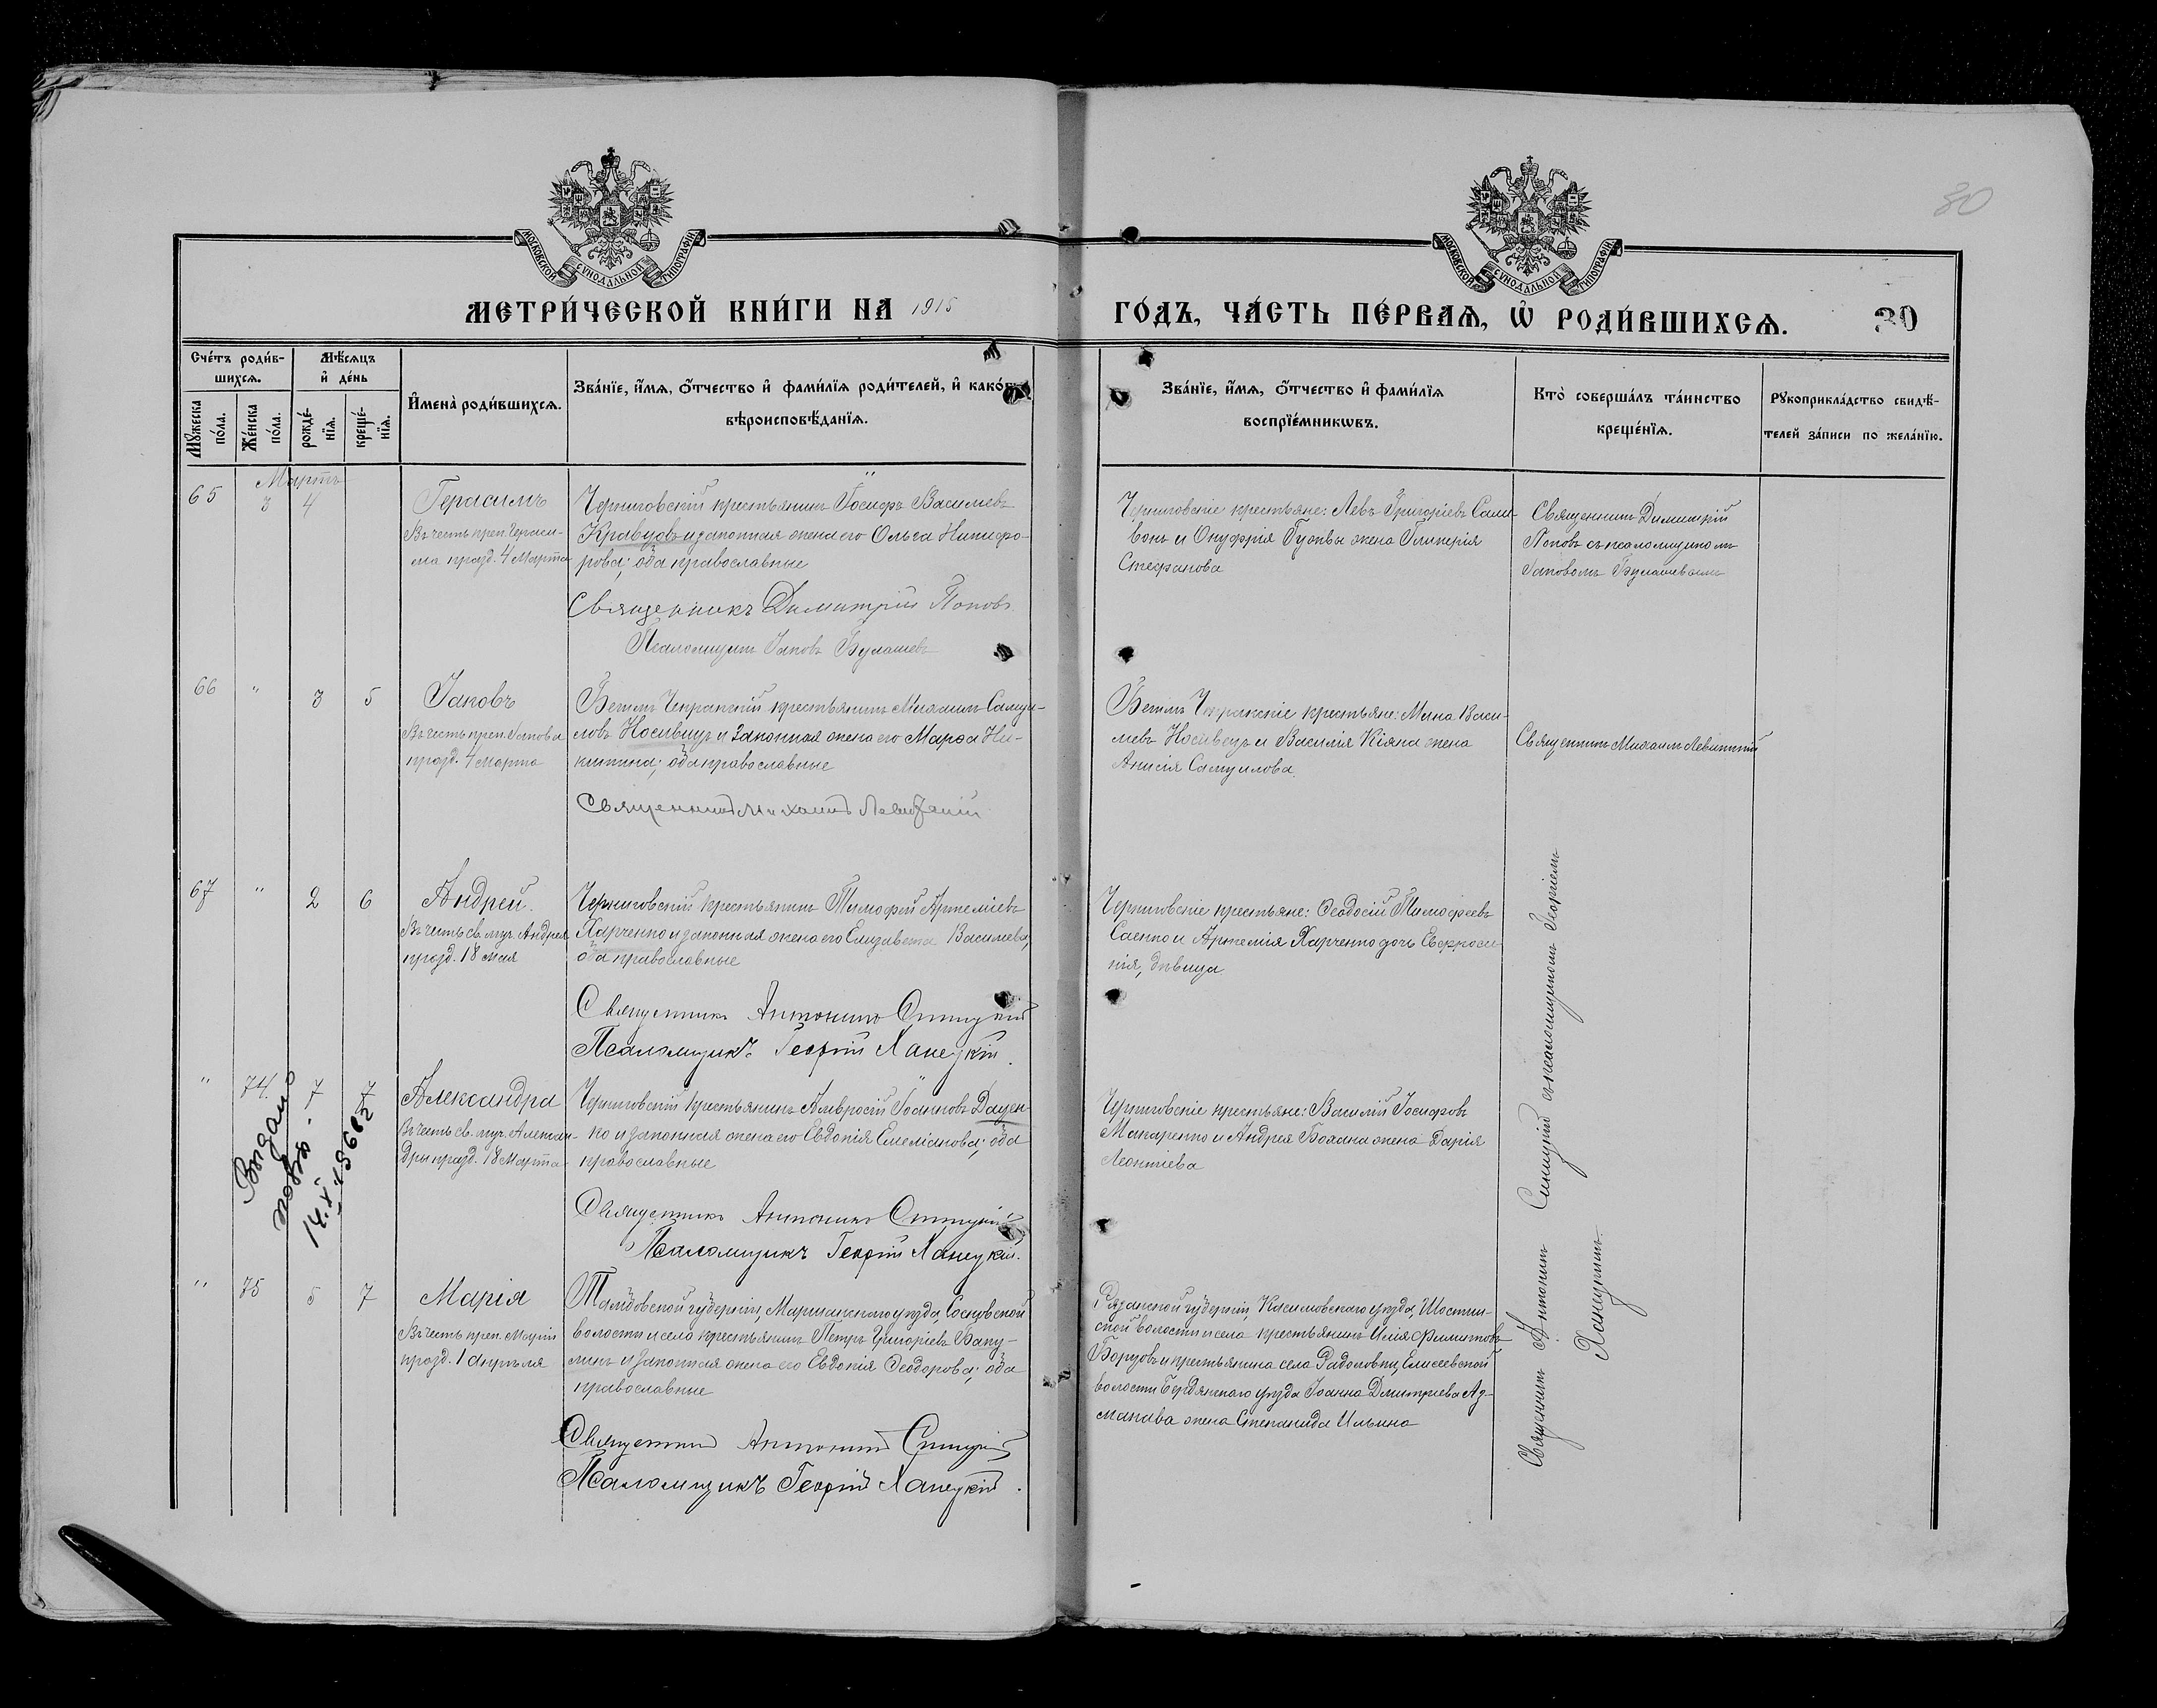 МОСКОВСКОЙ СѴНОДАЛЬНОЙ ТИПОГРАФІИ
МОСКОВСКОЙ СѴНОДАЛЬНОЙ ТИПОГРАФІИ
30
МЕТРИ́ЧЕСКОЙ КНИ́ГИ НА 1915
ГО́ДЪ, ЧА́СТЬ ПЕ́РВАѦ, Ѡ҆ РОДИ́ВШИХСѦ.
30
Сче́тъ роди́в-
шихсѧ.
Мѣ́сѧцъ
и҆ де́нь
Мꙋ́жеска
по́ла.
Же́нска
по́ла.
рожде́-
нїѧ.
креще́-
нїѧ.
И҆мена̀ роди́вшихсѧ.
Зва́нїе, и҆́мѧ, ѻ҆́тчество и҆ фами́лїѧ роди́телей, и҆ како́гѡ
вѣроисповѣ́данїѧ.
Зва́нїе, и҆́мѧ, ѻ҆́тчество и҆ фами́лїѧ
воспрїе́мникѡвъ.
Кто̀ соверша́лъ та́инство
креще́нїѧ.
Рꙋкоприкла́дство свидѣ́-
телей за́писи по жела́нїю.
Мартъ
65 3 4
Герасимъ
Въ честь преп. Гераси-
ма празд. 4 Марта
Черниговскій крестьянинъ Іосифъ Васильевъ
Кравцовъ и законная жена его Ольга Никифо-
рова; оба православные
Священникъ Димитрій Поповъ
Псаломщикъ Іаковъ Булашевъ
Черниговскіе крестьяне: Левъ Григоріевъ Сали-
вонъ и Онуфрія жена Гликерія
Стефанова
Священникъ Димитрій
Поповъ съ псаломщикомъ
Іаковомъ Булашевымъ
66 " 3 5
Іаковъ
Въ честь преп. Іакова
празд. 4 Марта
крестьянинъ Михаилъ Самуи-
ловъ Носивецъ и законная жена его Марѳа Ни-
китина; оба православные
Священникъ Михаилъ Левитскій
крестьяне: Мина Васи-
льевъ Носивецъ и Василія Кіяна жена
Анисія Самуилова
Священникъ Михаилъ Левитскій
67 " 2 6
Андрей
Въ честь св. муч. Андрея
празд. 18 мая
Черниговскій крестьянинъ Тимофей Артеміевъ
Харченко и законная жена его Елизавета Васильева,
оба православные
Священникъ Антонинъ Синицкій
Псаломщикъ Георгій Ханецкій
Черниговскіе крестьяне: Ѳеодосій Тимофеевъ
Саенко и Артемія Харченко дочь Евфроси-
нія, девица
" 74. 7 7
Александра
Въ честь св. муч. Алексан-
дры празд. 18 Марта
Черниговскій крестьянинъ Амвросій Іоанновъ Дацен-
ко и законная жена его Евдокія Емеліанова; оба
православные
Священникъ Антонинъ Синицкій
Псаломщикъ Георгій Ханецкій.
Черниговскіе крестьяне: Василій Іосифовъ
Макаренко и Андрея Бохана жена Дарія
Леонтіева
Выдано
14.X
" 75 5 7
Марія
Въ честь преп. Маріи
празд. 1 апрѣля
Тамбовской губерніи, Моршанскаго уѣзда, Сосновской
волости и села крестьянинъ Петръ Григоріевъ Баку-
линъ и законная жена его Евдокія Ѳеодорова; оба
православные
Священникъ Антонинъ Синицкій
Псаломщикъ Георгій Ханецкій.
Рязанской губерніи, Касимовскаго уѣзда,
волости и села крестьянинъ Илія
Борзовъ и крестьянина села Радоловки, Елисеевской
волости Бердянскаго уѣзда Іоанна Дмитріева Аз-
манава жена Степанида Ильина
Священникъ Антонинъ Синицкій съ псаломщикомъ Георгіемъ
Ханецкимъ.